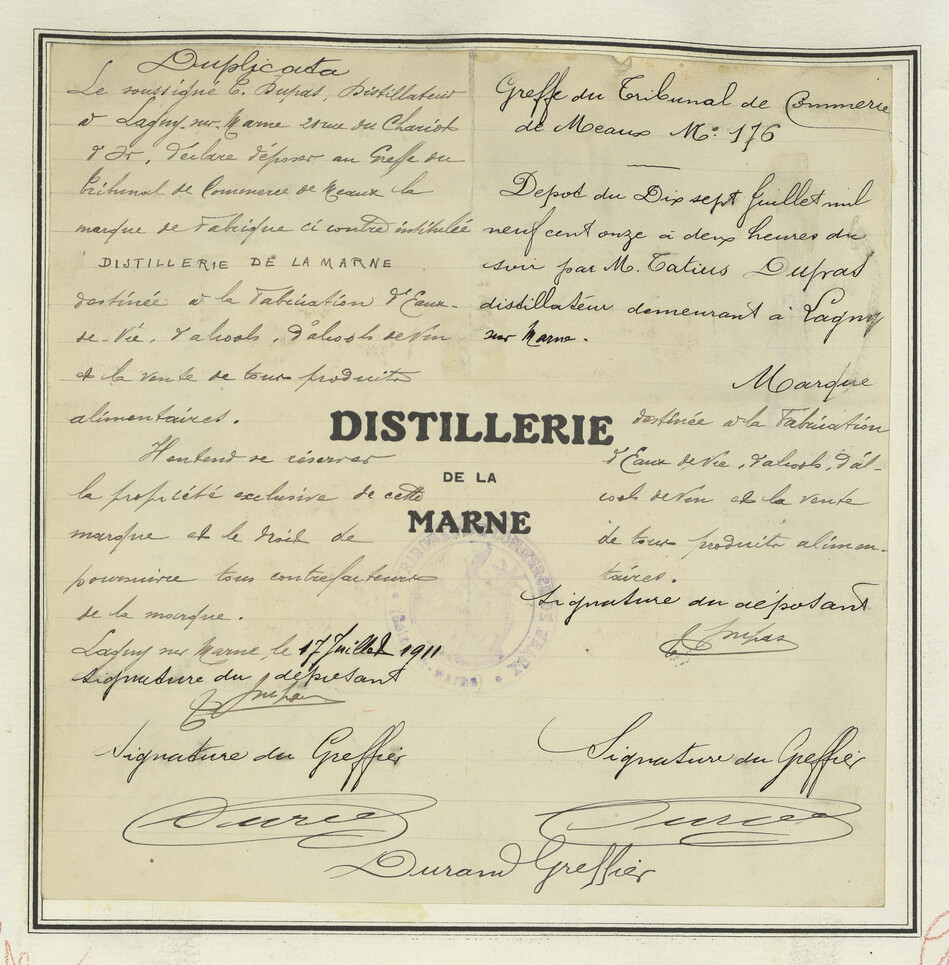 Duplicata
Le soussigné C. Dupas, Distillateur
à Lagny-sur-Marne 21 rue du Chariot
d'Or, déclare déposer au Greffe du
Tribunal de Commerce de Meaux la
marque de Fabrique ci contre intitulée
DISTILLERIE DE LA MARNE
destinée à la Fabrication d'Eaux-
de-Vie, d'alcools, d'alcools de Vin
et la vente de tous produits
alimentaires.
Il entend se réserver
la propriété exclusive de cette
marque et le droit de
poursuivre tous contrefacteurs
de la marque.
Lagny sur Marne, le 17 Juillet 1911
Signature du déposant
Dupas
Signature du Greffier
Greffe du Tribunal de Commerce
de Meaux No. 176
Depot du Dix sept Juillet mil
neuf cent onze à deux heures du
soir par M. Tatius Dupas
distillateur demeurant à Lagny
sur Marne.
Marque
destinée à la Fabrication
d'Eaux de Vie, d'alcools, d'al-
cools de Vin et la vente
de tous produits alimen-
taires.
Signature du déposant
Dupas
Signature du Greffier
Durand Greffier
DISTILLERIE
DE LA
MARNE
TRIBUNAL DE COMMERCE DE MEAUX